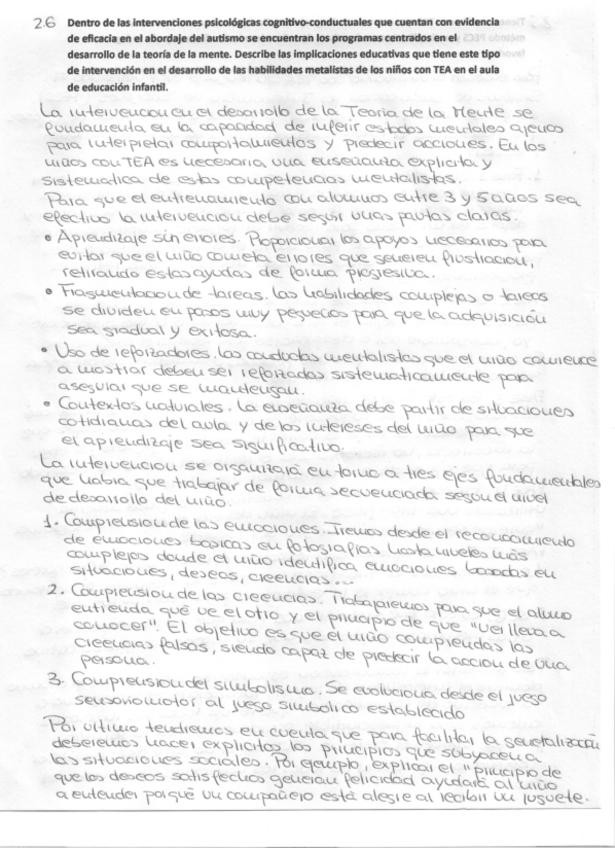 26 Dentro de las intervenciones psicológicas cognitivo-conductuales que cuentan con evidencia
de eficacia en el abordaje del autismo se encuentran los programas centrados en el
desarrollo de la teoría de la mente. Describe las implicaciones educativas que tiene este tipo
de intervención en el desarrollo de las habilidades metalistas de los niños con TEA en el aula
de educación infantil.
La intervención en el desarrollo de la Teoría de la Mente se
fundamenta en la capacidad de inferir estados mentales ajenos
para interpretar comportamientos y predecir acciones. En los
niños con TEA es necesaria una enseñanza explícita y
sistemática de estas competencias mentalistas.
Para que el entrenamiento con alumnos entre 3 y 5 años sea
efectivo la intervención debe seguir unas pautas claras.
• Aprendizaje sin errores. Proporcionar los apoyos necesarios para
evitar que el niño cometa errores que generen frustración,
retirando estas ayudas de forma progresiva.
• Fragmentación de tareas. Las habilidades complejas o tareas
se dividen en pasos muy pequeños para que la adquisición
sea gradual y exitosa.
• Uso de reforzadores. Las conductas mentalistas que el niño comience
a mostrar deben ser reforzadas sistemáticamente para
asegurar que se mantengan.
• Contextos naturales. La enseñanza debe partir de situaciones
cotidianas del aula y de los intereses del niño para que
el aprendizaje sea significativo.
La intervención se organizará en torno a tres ejes fundamentales
que habrá que trabajar de forma secuenciada según el nivel
de desarrollo del niño.
1. Comprensión de las emociones. Iremos desde el reconocimiento
de emociones básicas en fotografías hasta niveles más
complejos donde el niño identifica emociones basadas en
situaciones, deseos, creencias...
2. Comprensión de las creencias. Trabajaremos para que el alumno
entienda qué ve el otro y el principio de que "ver lleva a
conocer". El objetivo es que el niño comprendas las
creencias falsas, siendo capaz de predecir la acción de una
persona.
3. Comprensión del simbolismo. Se evoluciona desde el juego
sensoriomotor, al juego simbólico establecido
Por último tendremos en cuenta que para facilitar la generalización
deberemos hacer explícitos los principios que subyacen a
las situaciones sociales. Por ejemplo, explicar el "principio de
que los deseos satisfechos generan felicidad ayudará al niño
a entender porqué un compañero está alegre al recibir un juguete.